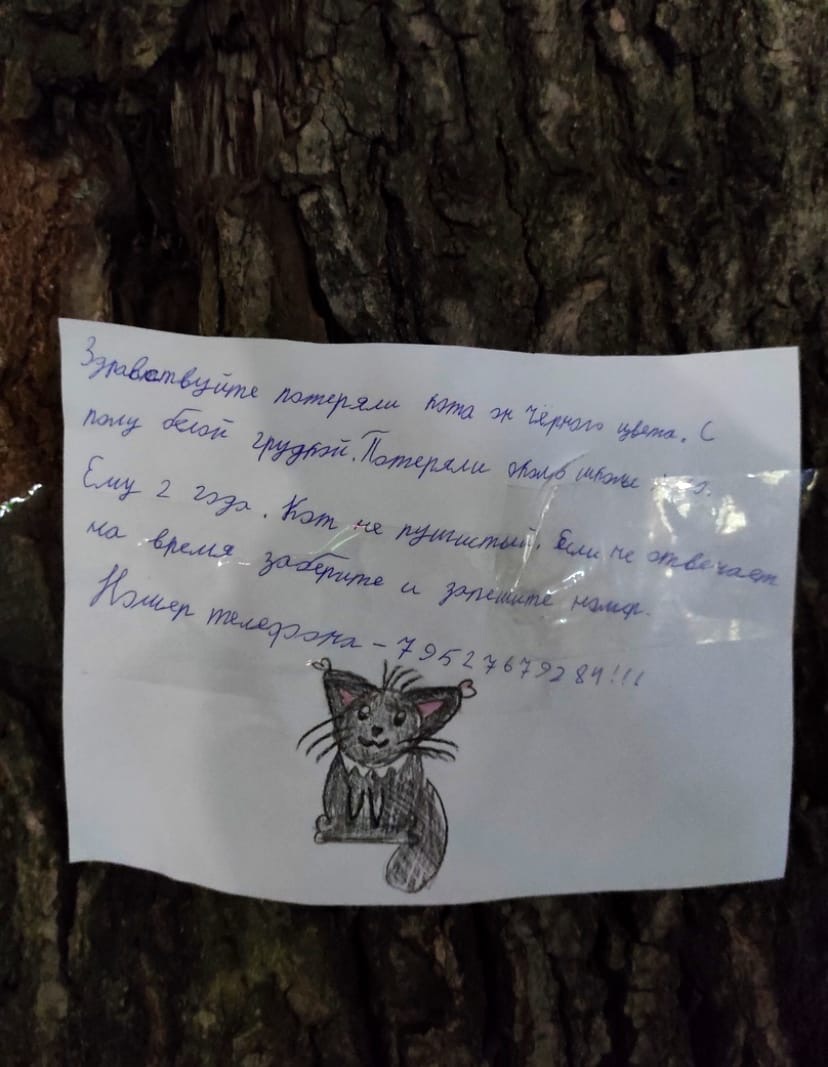 Здравствуйте потеряли кота он чёрного цвета. С
полу белой грудкой. Потеряли около школы
Ему 2 года. Кот не пушистый. Если не отвечает
на время заберите и запешите номер.
Номер телефона - 79527679284!!!